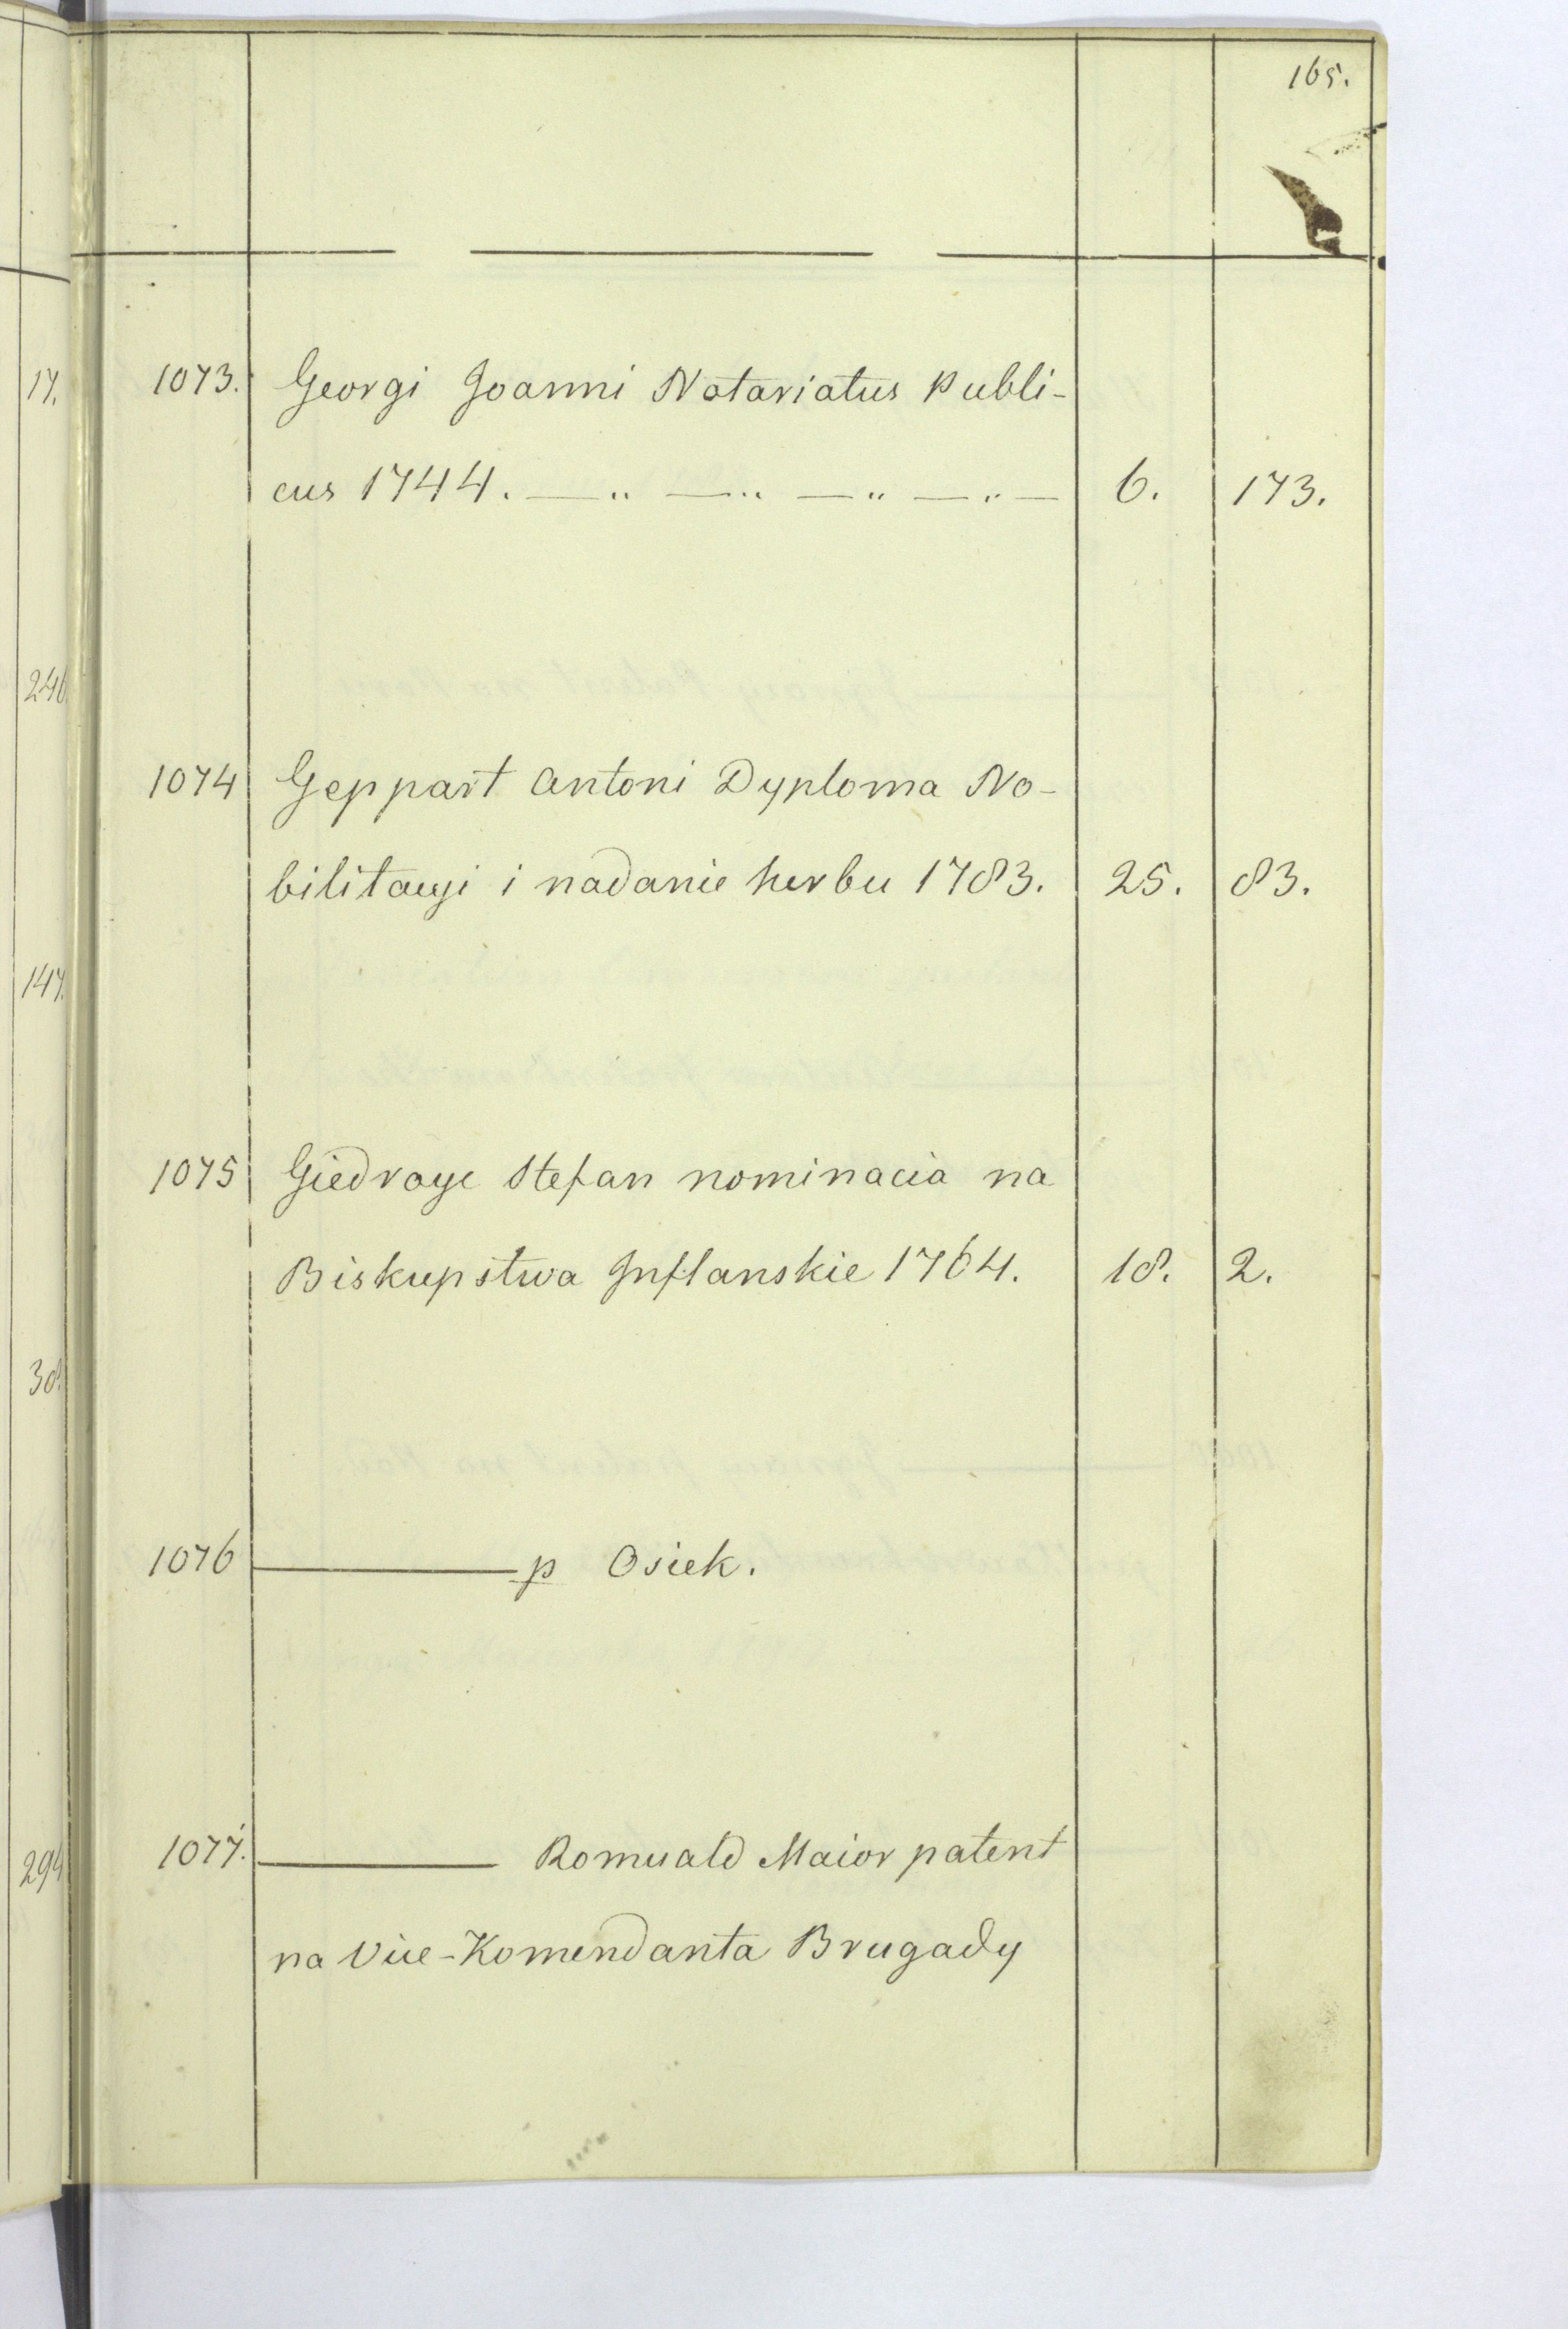 165.
1073. Georgi Joanni Notariatus Publi-
cus 1744. — „ — „ — „ — „ — 6. 173.
1074 Geppart Antoni Dyploma No-
bilitacyi i nadanie herbu 1783. 25. 83.
1075 Giedroyc Stefan nominacia na
Biskupstwa Inflanskie 1764. 18. 2.
1076 ——— p Osiek.
1077. ——— Romuald Maior patent
na Vice-Komendanta Brugady
17.
246.
147.
38.
294